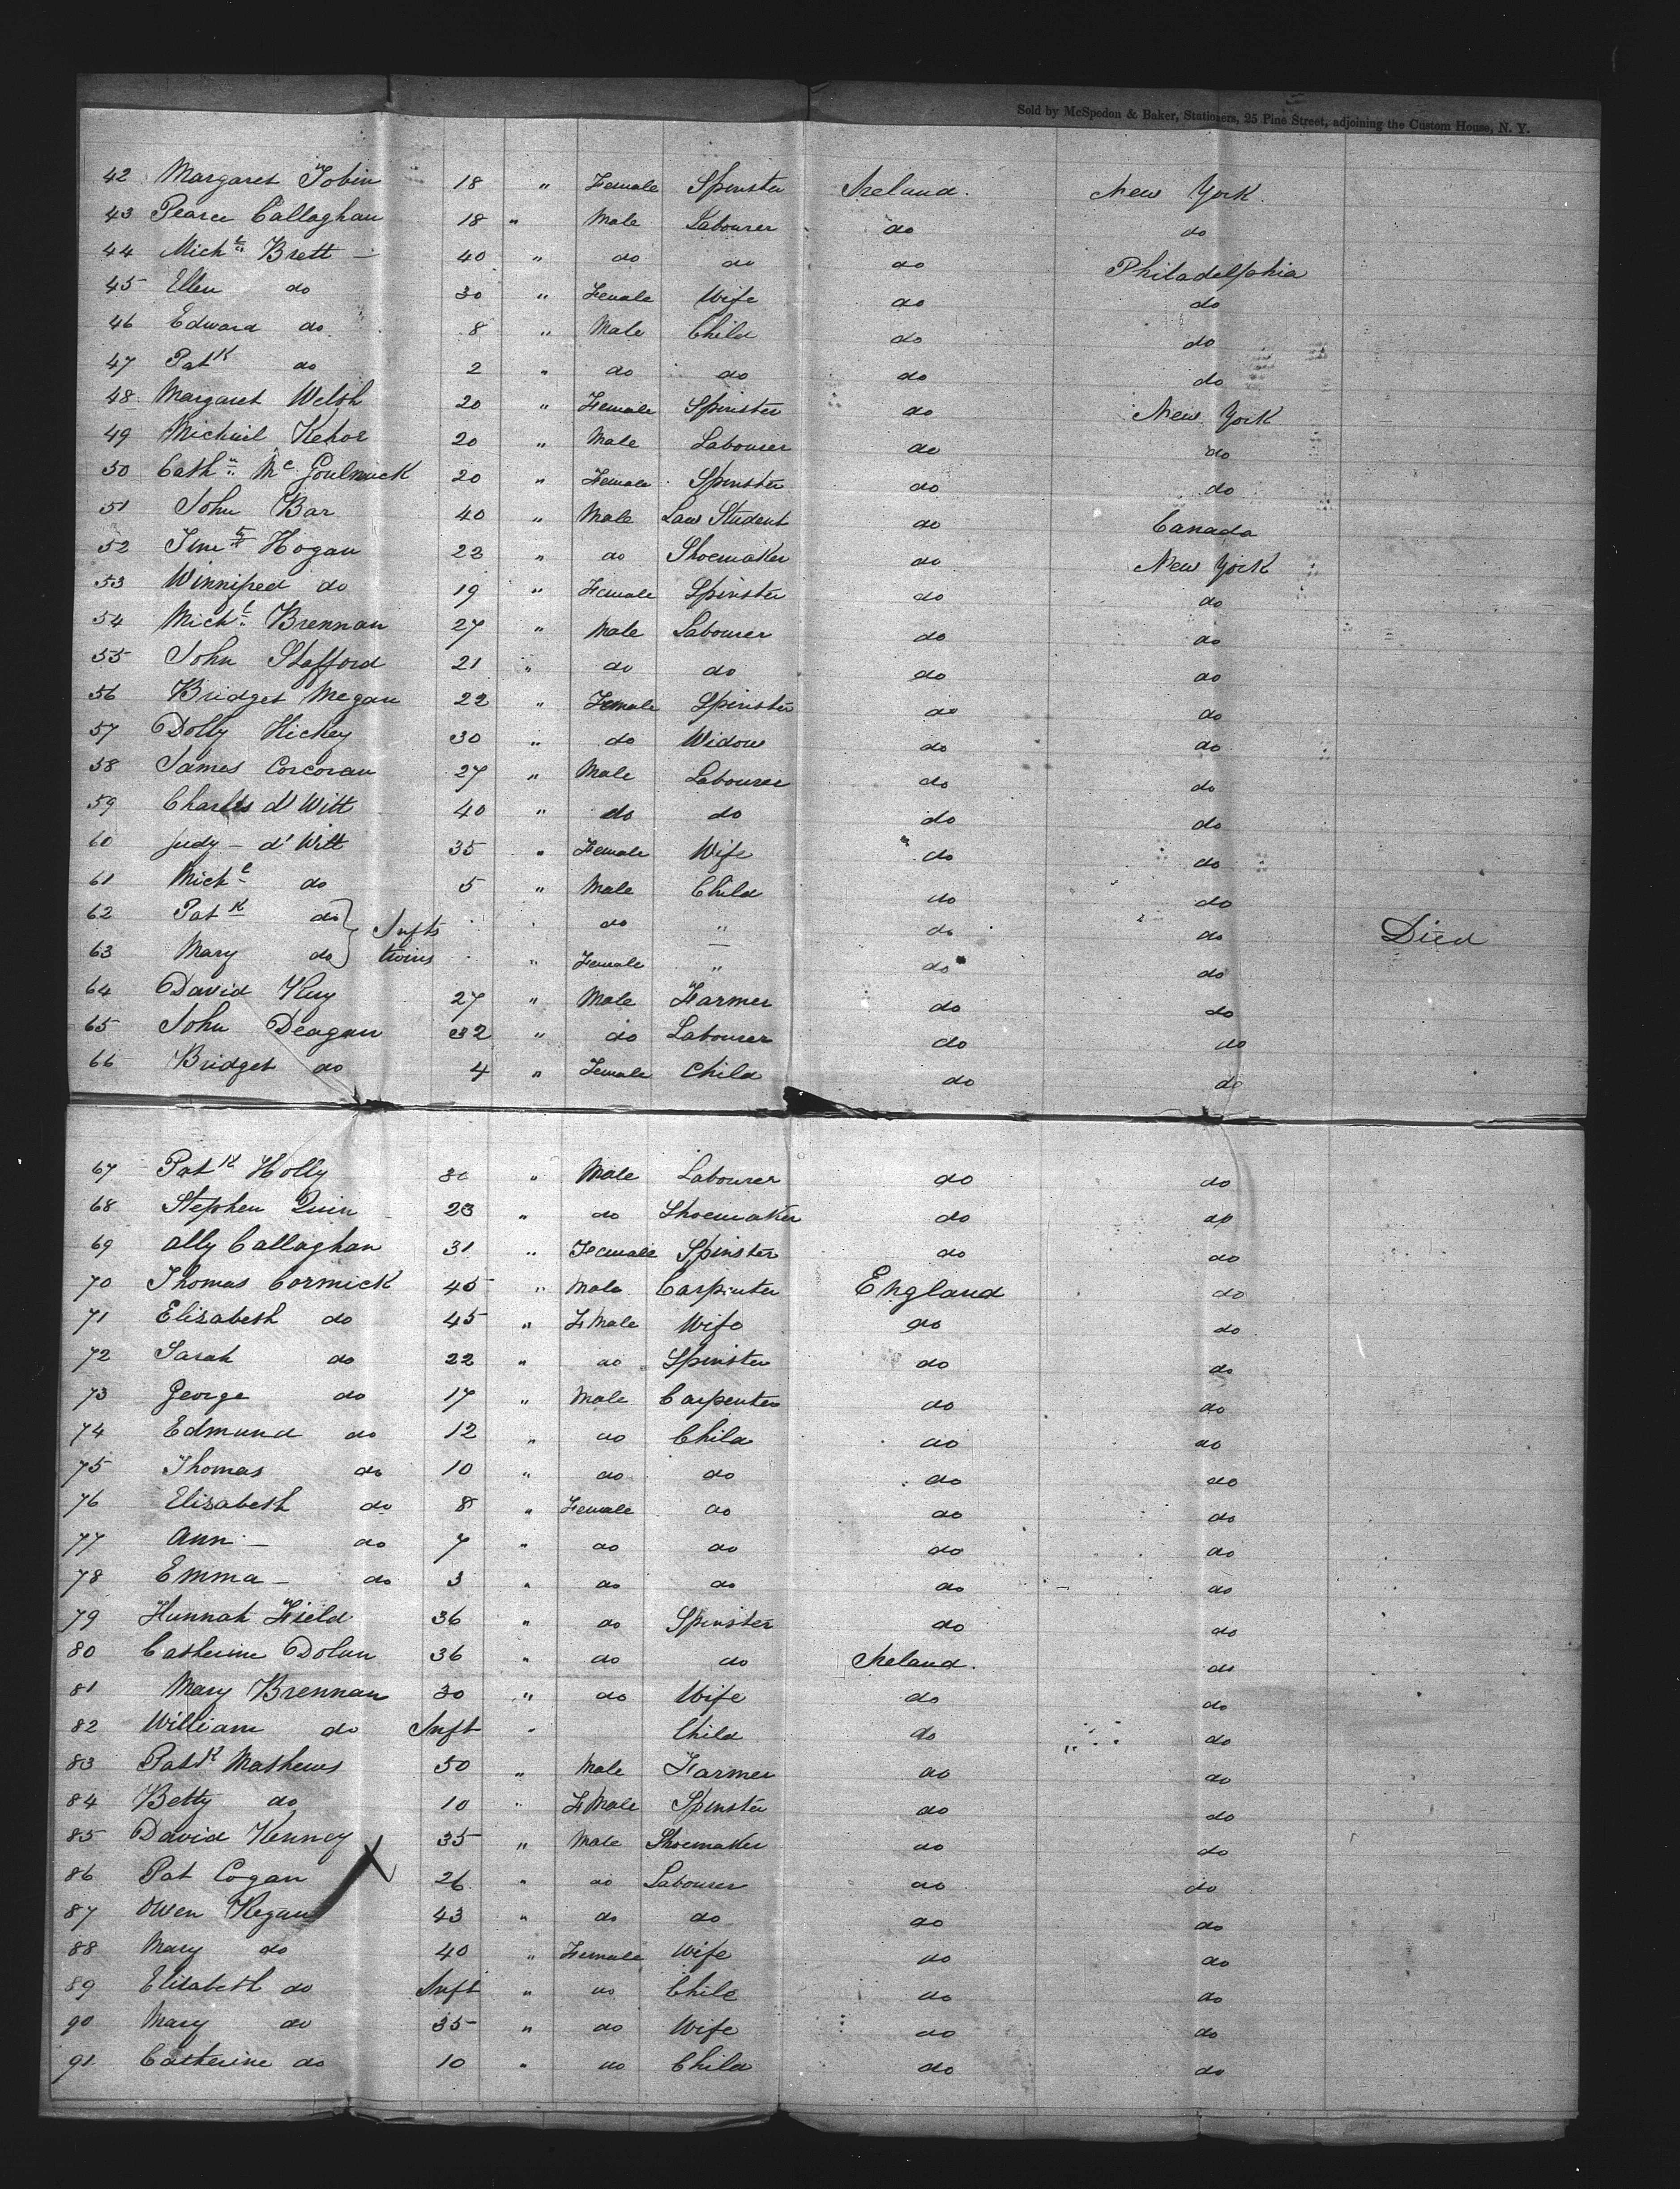 Sold by McSpedon & Baker, Stationers, 25 Pine Street, adjoining the Custom House, N. Y.
42 Margaret Tobin 18 " Female Spinster Ireland. New York.
43 Pearce Callaghan 18 " Male Labourer do do
44 Michl Brett — 40 " do do do Philadelphia
45 Ellen do 30 " Female Wife do do
46 Edward do 8 " Male Child do do
47 Patk do 2 " do do do do
48 Margaret Welsh 20 " Female Spinster do New York
49 Michail Kehoe 20 " Male Labourer do do
50 Cath Mc 20 " Female Spinster do do
51 John Bar 40 " Male Law Student do Canada
52 Hogan 22 " do Shoemaker do New York
53 Winnifred do 19 " Female Spinster do do
54 Michl Brennan 27 " Male Labourer do do
55 John Stafford 21 " do do do do
56 Bridget Megan 22 " Female Spinster do do
57 Dolly Hickey 30 " do Widow do do
58 James Corcoran 27 " Male Labourer do do
59 Charles d'Witt 40 " do do do do
60 Judy — d'Witt 35 " Female Wife do do
61 Michl do 5 " Male Child do do
62 Patk do } Infts do " do do Died
63 Mary do } twins " Female " do do
64 David 27 " Male Farmer do do
65 John Deagan 32 " do Labourer do do
66 Bridget do 4 " Female Child do do
67 Patk Holly 30 " Male Labourer do do
68 Stephen Quin 23 " do Shoemaker do do
69 Ally Callaghan 31 " Female Spinster do do
70 Thomas Cormick 45 " Male Carpinter England do
71 Elisabeth do 45 " FMale Wife do do
72 Sarah do 22 " do Spinster do do
73 George do 17 " Male Carpenter do do
74 Edmund do 12 " do Child do do
75 Thomas do 10 " do do do do
76 Elisabeth do 8 " Female do do do
77 Ann — do 7 " do do do do
78 Emma — do 3 " do do do do
79 Hunnah Field 36 " do Spinster do do
80 Catherine Dolan 36 " do do Ireland. do
81 Mary Brennan 30 " do Wife do do
82 William do Inft " Child do do
83 Patk Mathews 50 " Male Farmer do do
84 Betty do 10 " FMale Spinster do do
85 David Kenney 35 " Male Shoemaker do do
86 Pat Cogan 26 " do Labourer do do
87 Owen Kegan 43 " do do do do
88 Mary do 40 " Female Wife do do
89 Elisabeth do Inft " do Chile do do
90 Mary do 35 " do Wife do do
91 Catherine do 10 " do Child do do